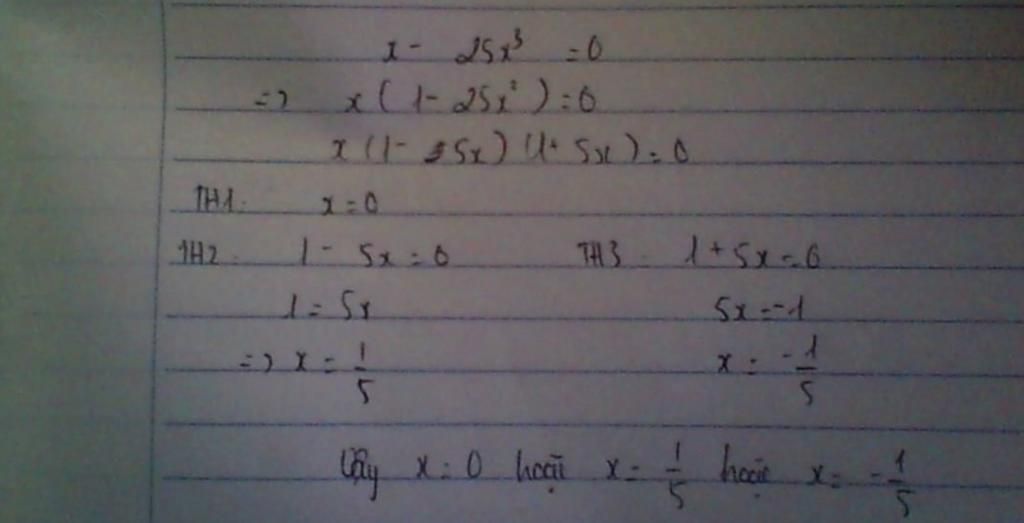 x - 25x³ = 0
=> x ( 1 - 25x² ) = 0
x (1 - 5x) (1 + 5x) = 0
TH1: x = 0
TH2: 1 - 5x = 0 TH3: 1 + 5x = 0
1 = 5x 5x = -1
=> x = 1/5 x = -1/5
Vậy x = 0 hoặc x = 1/5 hoặc x = -1/5